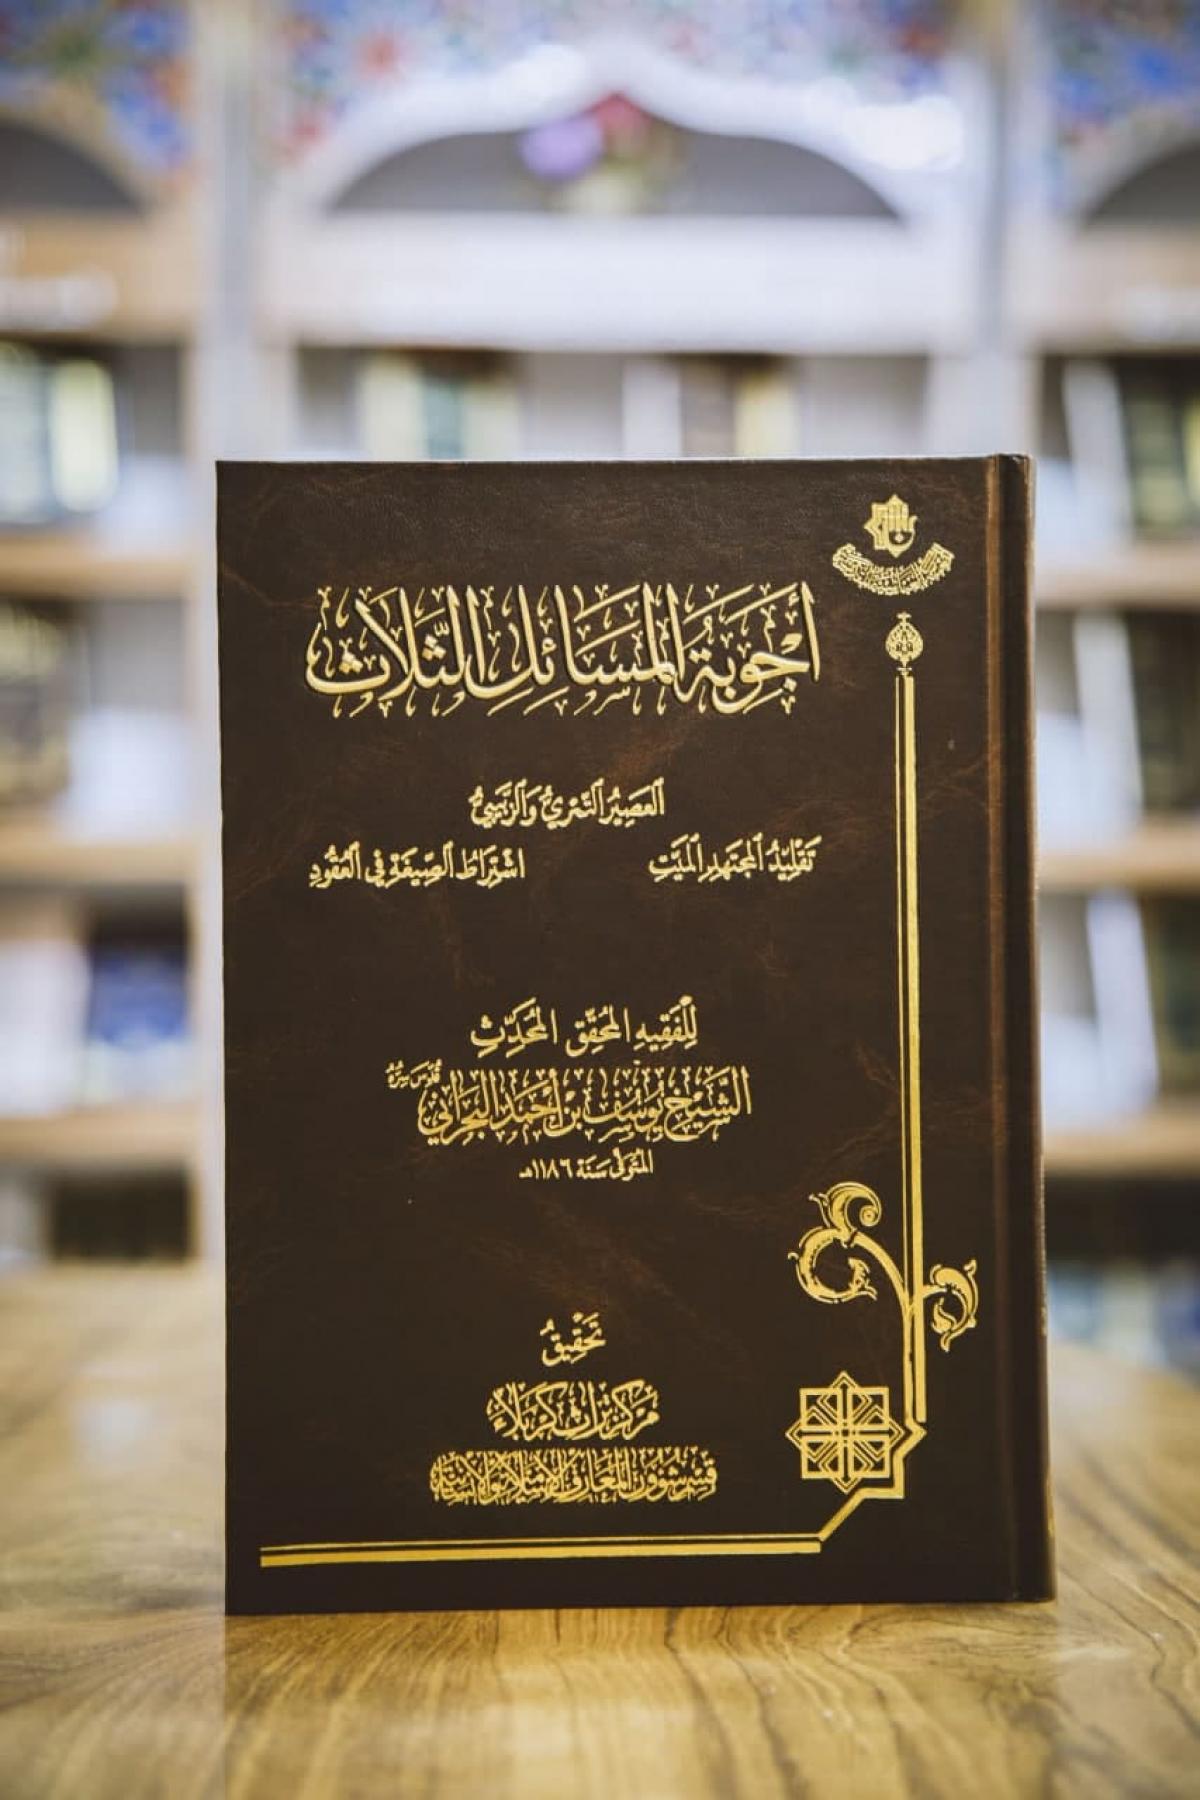 أَجْوِبَةُ المَسَائِلِ الثَّلَاثِ
العَصِيرُ التَّمْرِيُّ وَالزَّبِيبِيُّ
تَقْلِيدُ المُجْتَهِدِ المَيِّتِ
اشْتِرَاطُ الصِّيغَةِ فِي العُقُودِ
لِلْفَقِيهِ المُحَقِّقِ المُحَدِّثِ
الشَّيْخِ يُوسُفَ بْنِ أَحْمَدَ البَحْرَانِيِّ قُدِّسَ سِرُّهُ
المُتَوَفَّى سَنَةَ ١١٨٦هـ
تَحْقِيقُ
مَرْكَزِ تُرَاثِ كَرْبَلَاءَ
قِسْمِ شُؤُونِ المَعَارِفِ الإِسْلَامِيَّةِ وَالإِنْسَانِيَّةِ